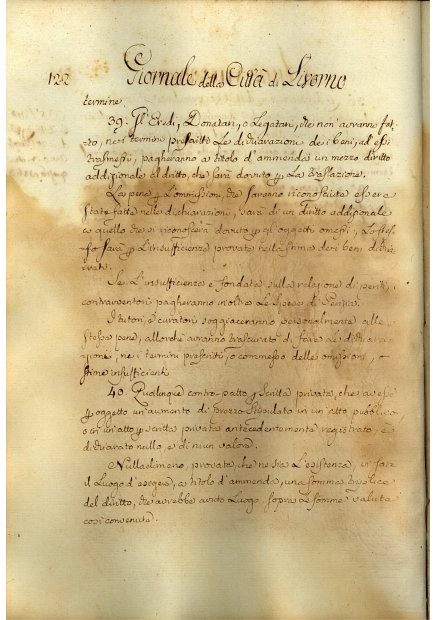 122 Giornale della Città di Livorno
termine
39. Gl'Eredi, Donatari, o Legatari, che non'avranno fat-
to, ne i termini prescritti Le dichiarazioni dei beni, ad essi
trasmessi, pagheranno a titolo d'ammenda un mezzo diritto
addizionale al dritto, che sarà dovuto p La traslazione.
La pena p L'ommissioni, che saranno riconosciute essere
state fatte nelle dichiarazioni, sarà di un diritto addizionale
a quello che si riconoscerà dovuto p gl'oggetti omessi, Lo stes-
so sarà p L'insufficienze provate nella stima dei beni dichia-
rati.
Se L'insufficienza è fondata sulla relazione di periti, i
contravventori pagheranno inoltre Le spese di Perizia.
I tutori, e curatori soggiaceranno personalmente alle
stesse pene, allorchè avranno trascurato di fare Le dichiara-
zioni, ne i termini prescritti, o commesso delle omissioni, o
stime insufficienti
40. Qualunque contro-patto p Scritta privata, che avesse
p oggetto un'aumento di prezzo stipulato in un atto pubblico
o in un'atto p scritta privata antecedentemente registrato, è
dichiarato nullo, e di niun valore.
Nulladimeno, provata, che ne sia L'esistenza, vi sarà
il Luogo d'esigere, a titolo d'ammenda, una somma triplice
del diritto, che avrebbe avuto Luogo sopra Le somme, e valute
così convenute.